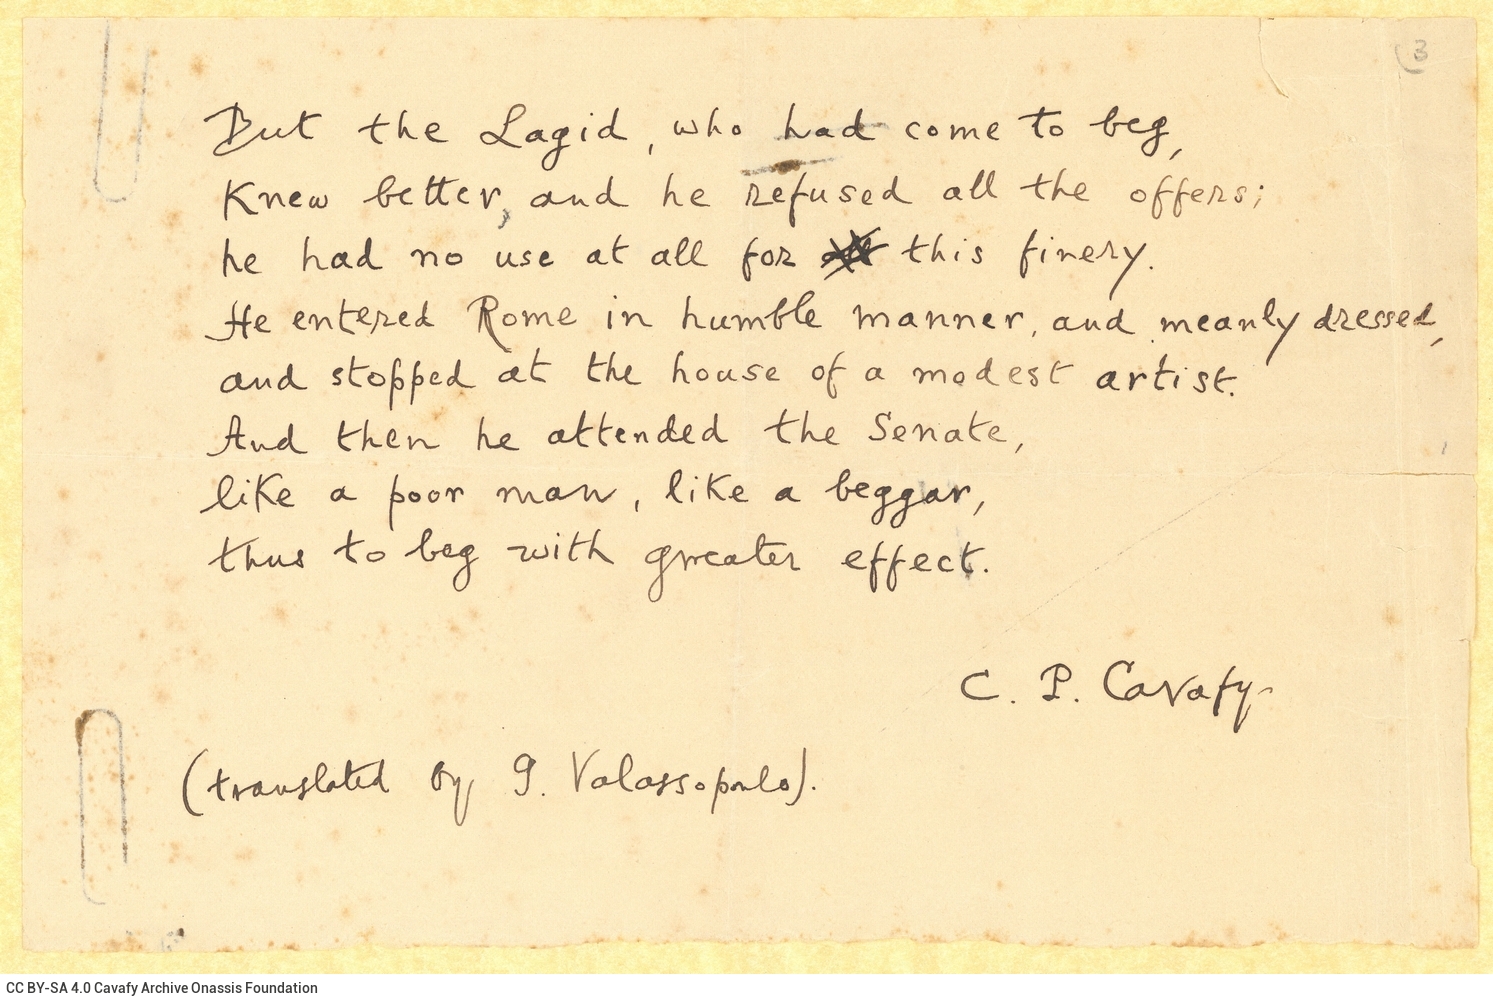 3
But the Lagid, who had come to beg,
Knew better, and he refused all the offers;
he had no use at all for this finery.
He entered Rome in humble manner, and meanly dressed,
and stopped at the house of a modest artist.
And then he attended the Senate,
like a poor man, like a beggar,
thus to beg with greater effect.
C. P. Cavafy
(translated by G. Valassopoulo).
CC BY-SA 4.0 Cavafy Archive Onassis Foundation